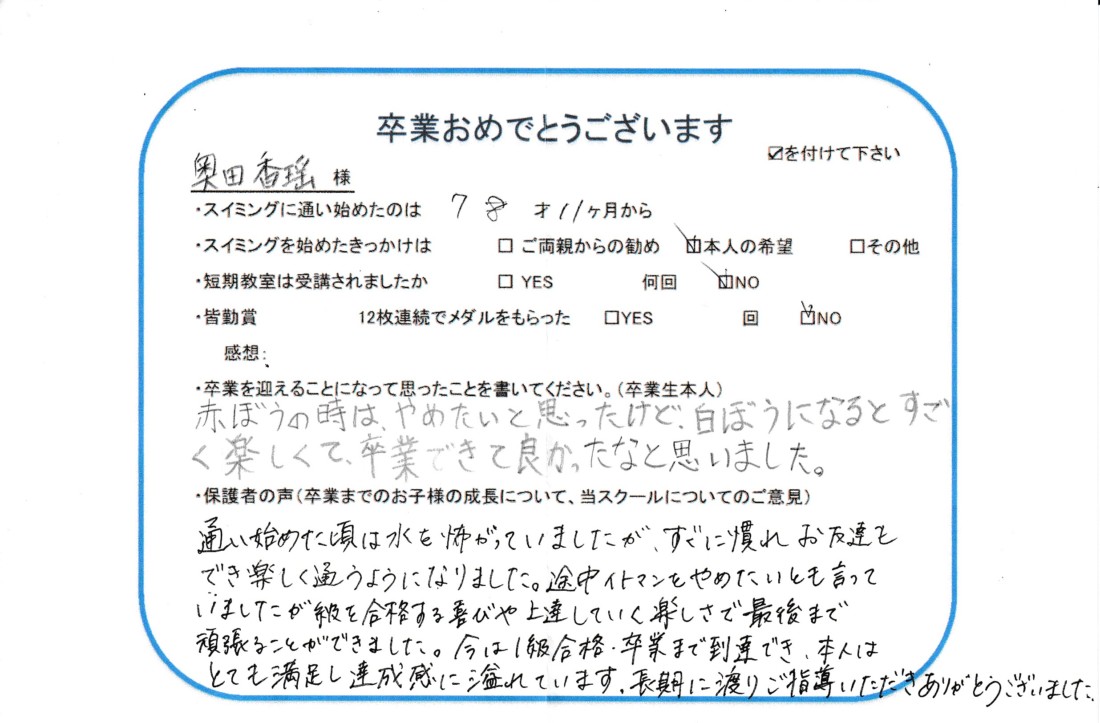 卒業おめでとうございます
☑を付けて下さい
奥田香瑶 様
・スイミングに通い始めたのは 7 8 才 11ヶ月から
・スイミングを始めたきっかけは □ ご両親からの勧め ☑本人の希望 □その他
・短期教室は受講されましたか □ YES 何回 ☑NO
・皆勤賞 12枚連続でメダルをもらった □YES 回 ☑NO
感想:
・卒業を迎えることになって思ったことを書いてください。(卒業生本人)
赤ぼうの時は、やめたいと思ったけど、白ぼうになるとすご
く楽しくて、卒業できて良かったなと思いました。
・保護者の声(卒業までのお子様の成長について、当スクールについてのご意見)
通い始めた頃は水を怖がっていましたが、すぐに慣れ お友達も
でき楽しく通うようになりました。途中イトマンをやめたいとも言って
いましたが級を合格する喜びや上達していく楽しさで最後まで
頑張ることができました。今は1級合格・卒業まで到達でき、本人は
とても満足し達成感に溢れています。長期に渡りご指導いただきありがとうございました。